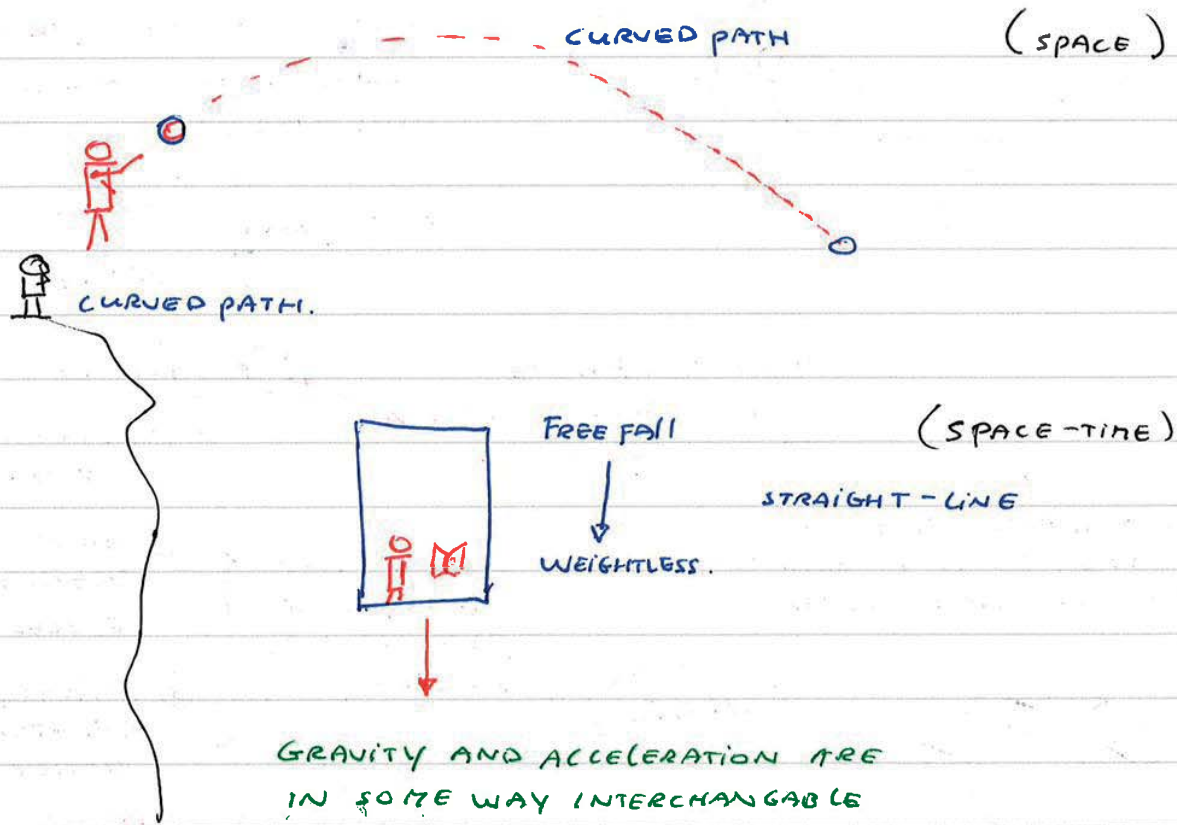 CURVED PATH
(SPACE)
CURVED PATH.
FREE FAll
(SPACE-TIME)
STRAIGHT-LINE
WEIGHTLESS.
GRAVITY AND ACCELERATION ARE
IN SOME WAY INTERCHANGABLE